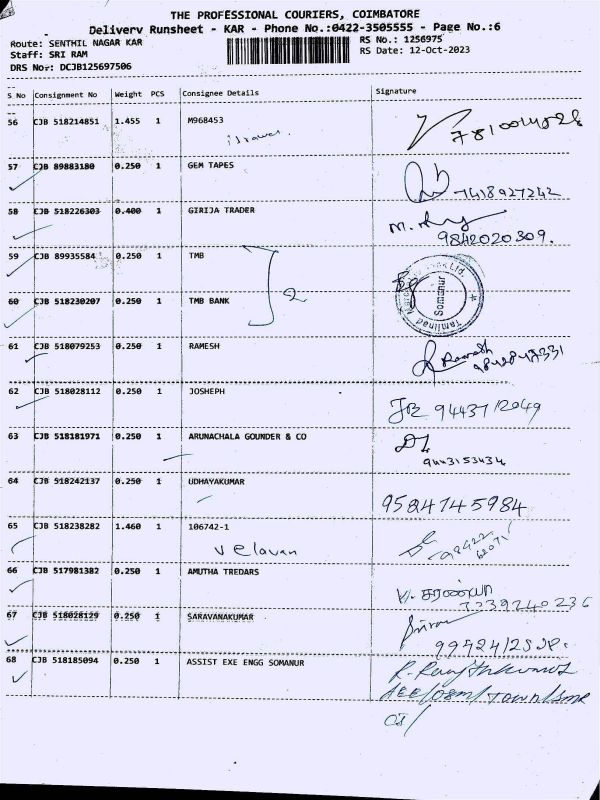 THE PROFESSIONAL COURIERS, COIMBATORE
Delivery Runsheet - KAR - Phone No.:0422-3505555 - Page No.:6
Route: SENTHIL NAGAR KAR RS No.: 1256975
Staff: SRI RAM RS Date: 12-Oct-2023
DRS Nor: DCJB125697506
S No Consignment No Weight PCS Consignee Details Signature
56 CJB 518214851 1.455 1 M968453
57 CJB 89883180 0.250 1 GEM TAPES
7418927242
58 CJB 518226303 0.400 1 GIRIJA TRADER
9842020309.
59 CJB 89935584 0.250 1 TMB
2
60 CJB 518230207 0.250 1 TMB BANK
Somanur
Tamilnad
61 CJB 518079253 0.250 1 RAMESH
Ramesh
62 CJB 518028112 0.250 1 JOSHEPH
9443712049
63 CJB 518181971 0.250 1 ARUNACHALA GOUNDER & CO
9443153434
64 CJB 518242137 0.250 1 UDHAYAKUMAR
9524745984
65 CJB 518238282 1.460 1 106742-1
Velavan
66 CJB 517981382 0.250 1 AMUTHA TREDARS
7339240236
67 CJB 518028129 0.250 1 SARAVANAKUMAR
68 CJB 518185094 0.250 1 ASSIST EXE ENGG SOMANUR